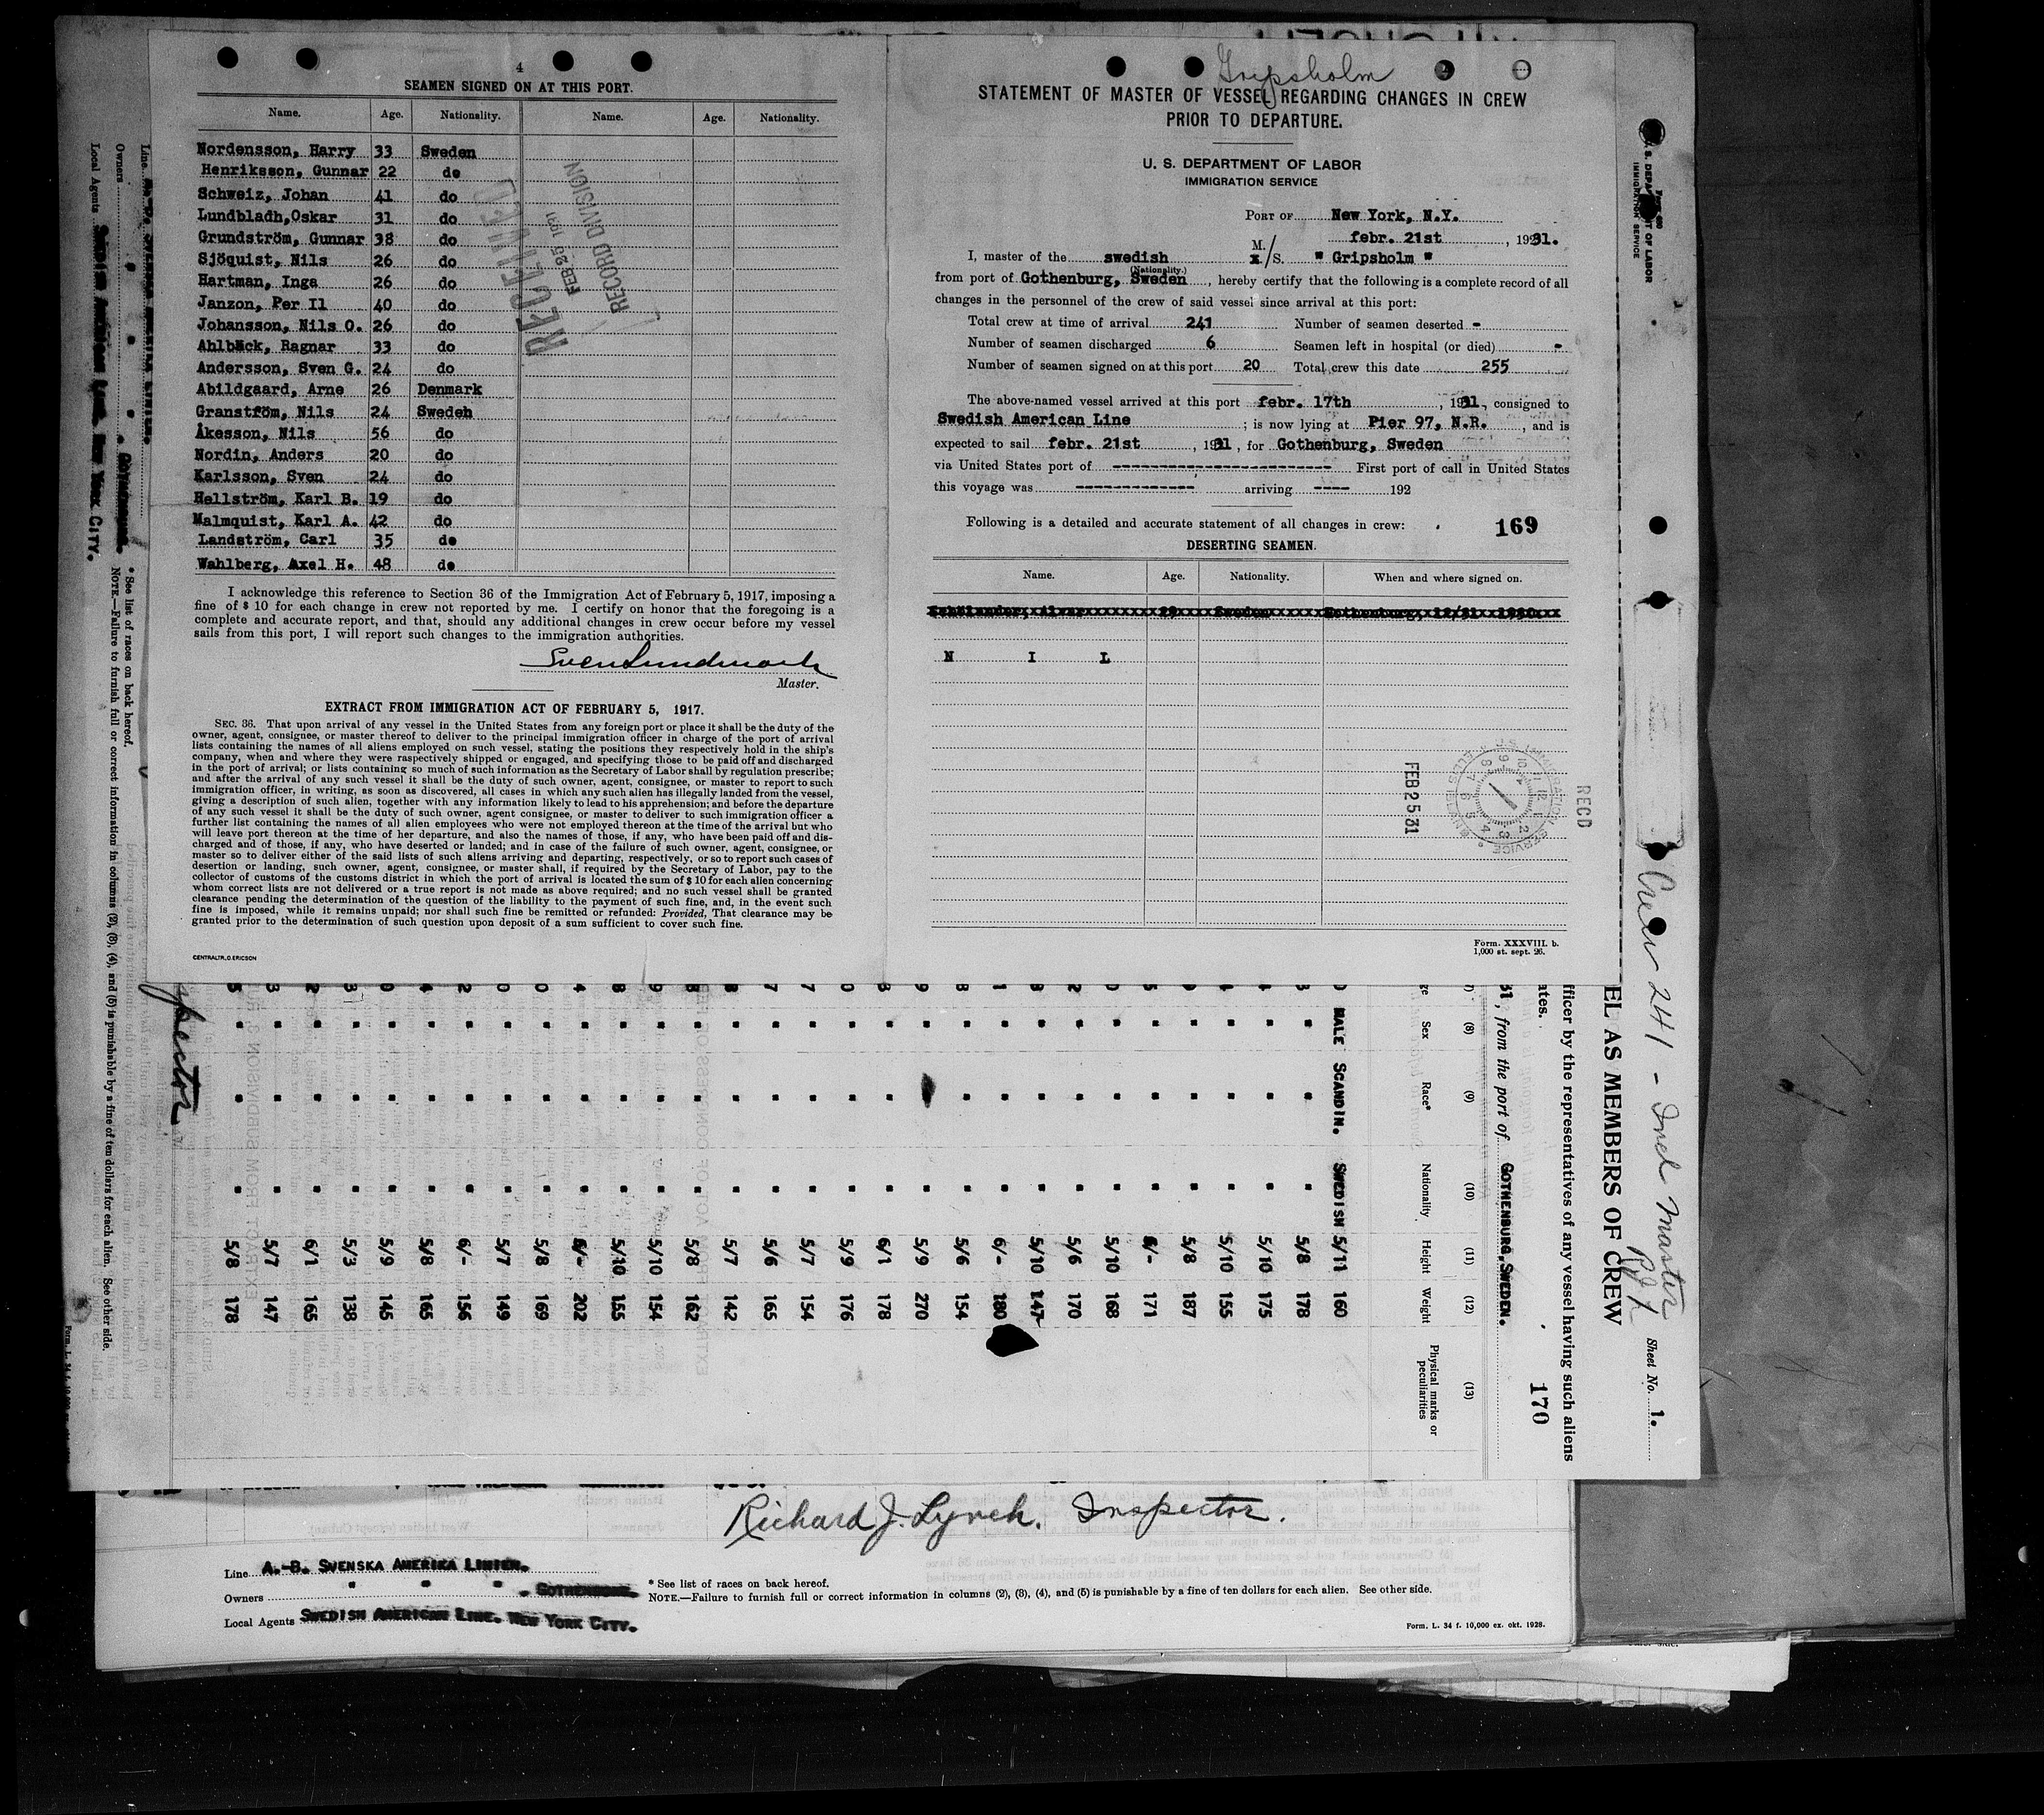 4
SEAMEN SIGNED ON AT THIS PORT.
Name. Age. Nationality. Name. Age. Nationality.
Nordensson, Harry 33 Sweden
Henriksson, Gunnar 22 do
Schweiz, Johan 41 do
Lundbladh,Oskar 31 do
Grundström, Gunnar 38 do
Sjöquist, Nils 26 do
Hartman, Inga 26 do
Janzon, Per Il 40 do
Johansson, Nils O. 26 do
Ahlbäck, Ragnar 33 do
Andersson, Sven G. 24 do
Abildgaard, Arne 26 Denmark
Granström, Nils 24 Sweden
Åkesson, Nils 56 do
Nordin, Anders 20 do
Karlsson, Sven 24 do
Hellström, Karl B. 19 do
Malmquist, Karl A. 42 do
Landström, Carl 35 do
Wahlberg, Axel H. 48 do
RECEIVED
FEB 25 1931
RECORD DIVISION
I acknowledge this reference to Section 36 of the Immigration Act of February 5, 1917, imposing a
fine of $ 10 for each change in crew not reported by me. I certify on honor that the foregoing is a
complete and accurate report, and that, should any additional changes in crew occur before my vessel
sails from this port, I will report such changes to the immigration authorities.
Sven Lundmark
Master.
EXTRACT FROM IMMIGRATION ACT OF FEBRUARY 5, 1917.
SEC. 36. That upon arrival of any vessel in the United States from any foreign port or place it shall be the duty of the
owner, agent, consignee, or master thereof to deliver to the principal immigration officer in charge of the port of arrival
lists containing the names of all aliens employed on such vessel, stating the positions they respectively hold in the ship's
company, when and where they were raspectively shipped or engaged, and specifying those to be paid off and discharged
in the port of arrival; or lists containing so much of such information as the Secretary of Labor shall by regulation prescribe;
and after the arrival of any such vessel it shall be the duty of such owner, agent, consignee, or master to report to such
immigration officer, in writing, as soon as discovered, all cases in which any such alien has illegally landed from the vessel,
giving a description of such alien, together with any information likely to lead to his apprehension; and before the departure
of any such vessel it shall be the duty of such owner, agent consignee, or master to deliver to such immigration officer a
further list containing the names of all alien employees who were not employed thereon at the time of the arrival but who
will leave port thereon at the time of her departure, and also the names of those, if any, who have been paid off and dis-
charged and of those, if any, who have deserted or landed; and in case of the failure of such owner, agent, consignee, or
master so to deliver either of the said lists of such aliens arriving and departing, respectively, or so to report such cases of
desertion or landing, such owner, agent, consignee, or master shall, if required by the Secretary of Labor, pay to the
collector of customs of the customs district in which the port of arrival is located the sum of $ 10 for each alien concerning
whom correct lists are not delivered or a true report is not made as above required; and no such vessel shall be granted
clearance pending the determination of the question of the liability to the payment of such fine, and, in the event such
fine is imposed, while it remains unpaid; nor shall such fine be remitted or refunded: Provided, That clearance may be
granted prior to the determination of such question upon deposit of a sum sufficient to cover such fine.
CENTRALTR, O. ERICSON
Gripsholm
STATEMENT OF MASTER OF VESSEL REGARDING CHANGES IN CREW
PRIOR TO DEPARTURE.
U. S. DEPARTMENT OF LABOR
IMMIGRATION SERVICE
PORT OF New York, N.Y.
febr. 21st, 1931.
I, master of the swedish M./S. " Gripsholm "
(Nationality.)
from port of Gothenburg, Sweden, hereby certify that the following is a complete record of all
changes in the personnel of the crew of said vessel since arrival at this port:
Total crew at time of arrival 241 Number of seamen deserted -
Number of seamen discharged 6 Seamen left in hospital (or died) -
Number of seamen signed on at this port 20 Total crew this date 255
The above-named vessel arrived at this port febr. 17th, 1931, consigned to
Swedish American Line ; is now lying at Pier 97, N.R., and is
expected to sail febr. 21st, 1931, for Gothenburg, Sweden
via United States port of ----------------------- First port of call in United States
this voyage was ------------- arriving ---- 192
Following is a detailed and accurate statement of all changes in crew: 169
DESERTING SEAMEN.
Name. Age. Nationality. When and where signed on.
N I L
RECD
FEB 25 31
Form. XXXVIII. b.
1,000 st. sept. 26.
U. S. DEPARTMENT OF LABOR
IMMIGRATION SERVICE
Crew 241 - Incl Master
RJL
Sheet No. 1.
EL AS MEMBERS OF CREW
fficer by the representatives of any vessel having such aliens
ates.
170
31, from the port of GOTHENBURG, SWEDEN.
(8) (9) (10) (11) (12) (13)
Sex Race* Nationality Height Weight Physical marks or peculiarities
MALE SCANDIN. SWEDISH 5/11 160
" " " 5/8 178
" " " 5/10 175
" " " 5/10 155
" " " 5/8 187
" " " 6/- 171
" " " 5/10 168
" " " 5/6 170
" " " 5/10 147
" " " 6/- 180
" " " 5/6 154
" " " 5/9 270
" " " 6/1 178
" " " 5/9 176
" " " 5/7 154
" " " 5/6 165
" " " 5/7 142
" " " 5/8 162
" " " 5/10 154
" " " 5/10 155
" " " 6/- 202
" " " 5/8 169
" " " 5/7 149
" " " 6/- 156
" " " 5/8 165
" " " 5/9 145
" " " 5/3 138
" " " 6/1 165
" " " 5/7 147
" " " 5/8 178
pector
Line A.-B. SVENSKA AMERIKA LINIEN.
Owners " " " , GOTHENBURG.
Local Agents SWEDISH AMERICAN LINE. NEW YORK CITY.
* See list of races on back hereof.
NOTE.—Failure to furnish full or correct information in columns (2), (3), (4), and (5) is punishable by a fine of ten dollars for each alien. See other side.
Richard J. Lynch. Inspector.
Line A.-B. SVENSKA AMERIKA LINIEN.
Owners " " " , GOTHENBURG.
Local Agents SWEDISH AMERICAN LINE. NEW YORK CITY.
* See list of races on back hereof.
NOTE.—Failure to furnish full or correct information in columns (2), (3), (4), and (5) is punishable by a fine of ten dollars for each alien. See other side.
Form. L. 34 f. 10,000 ex. okt. 1928.